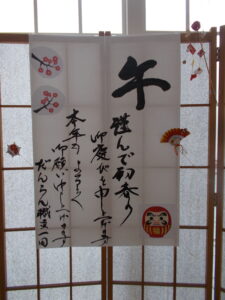 午
謹んで初春の
御慶びを申し上げます
本年もよろしく
御願い申し上げます
だんらん職員一同